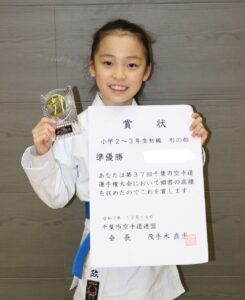 賞状
小学2～3年生初級 形の部
準優勝
あなたは第37回千葉市空手道
選手権大会において頭書の成績
を収めたのでこれを賞します
令和7年 12月14日
千葉市空手道連盟
会長 茂手木直忠